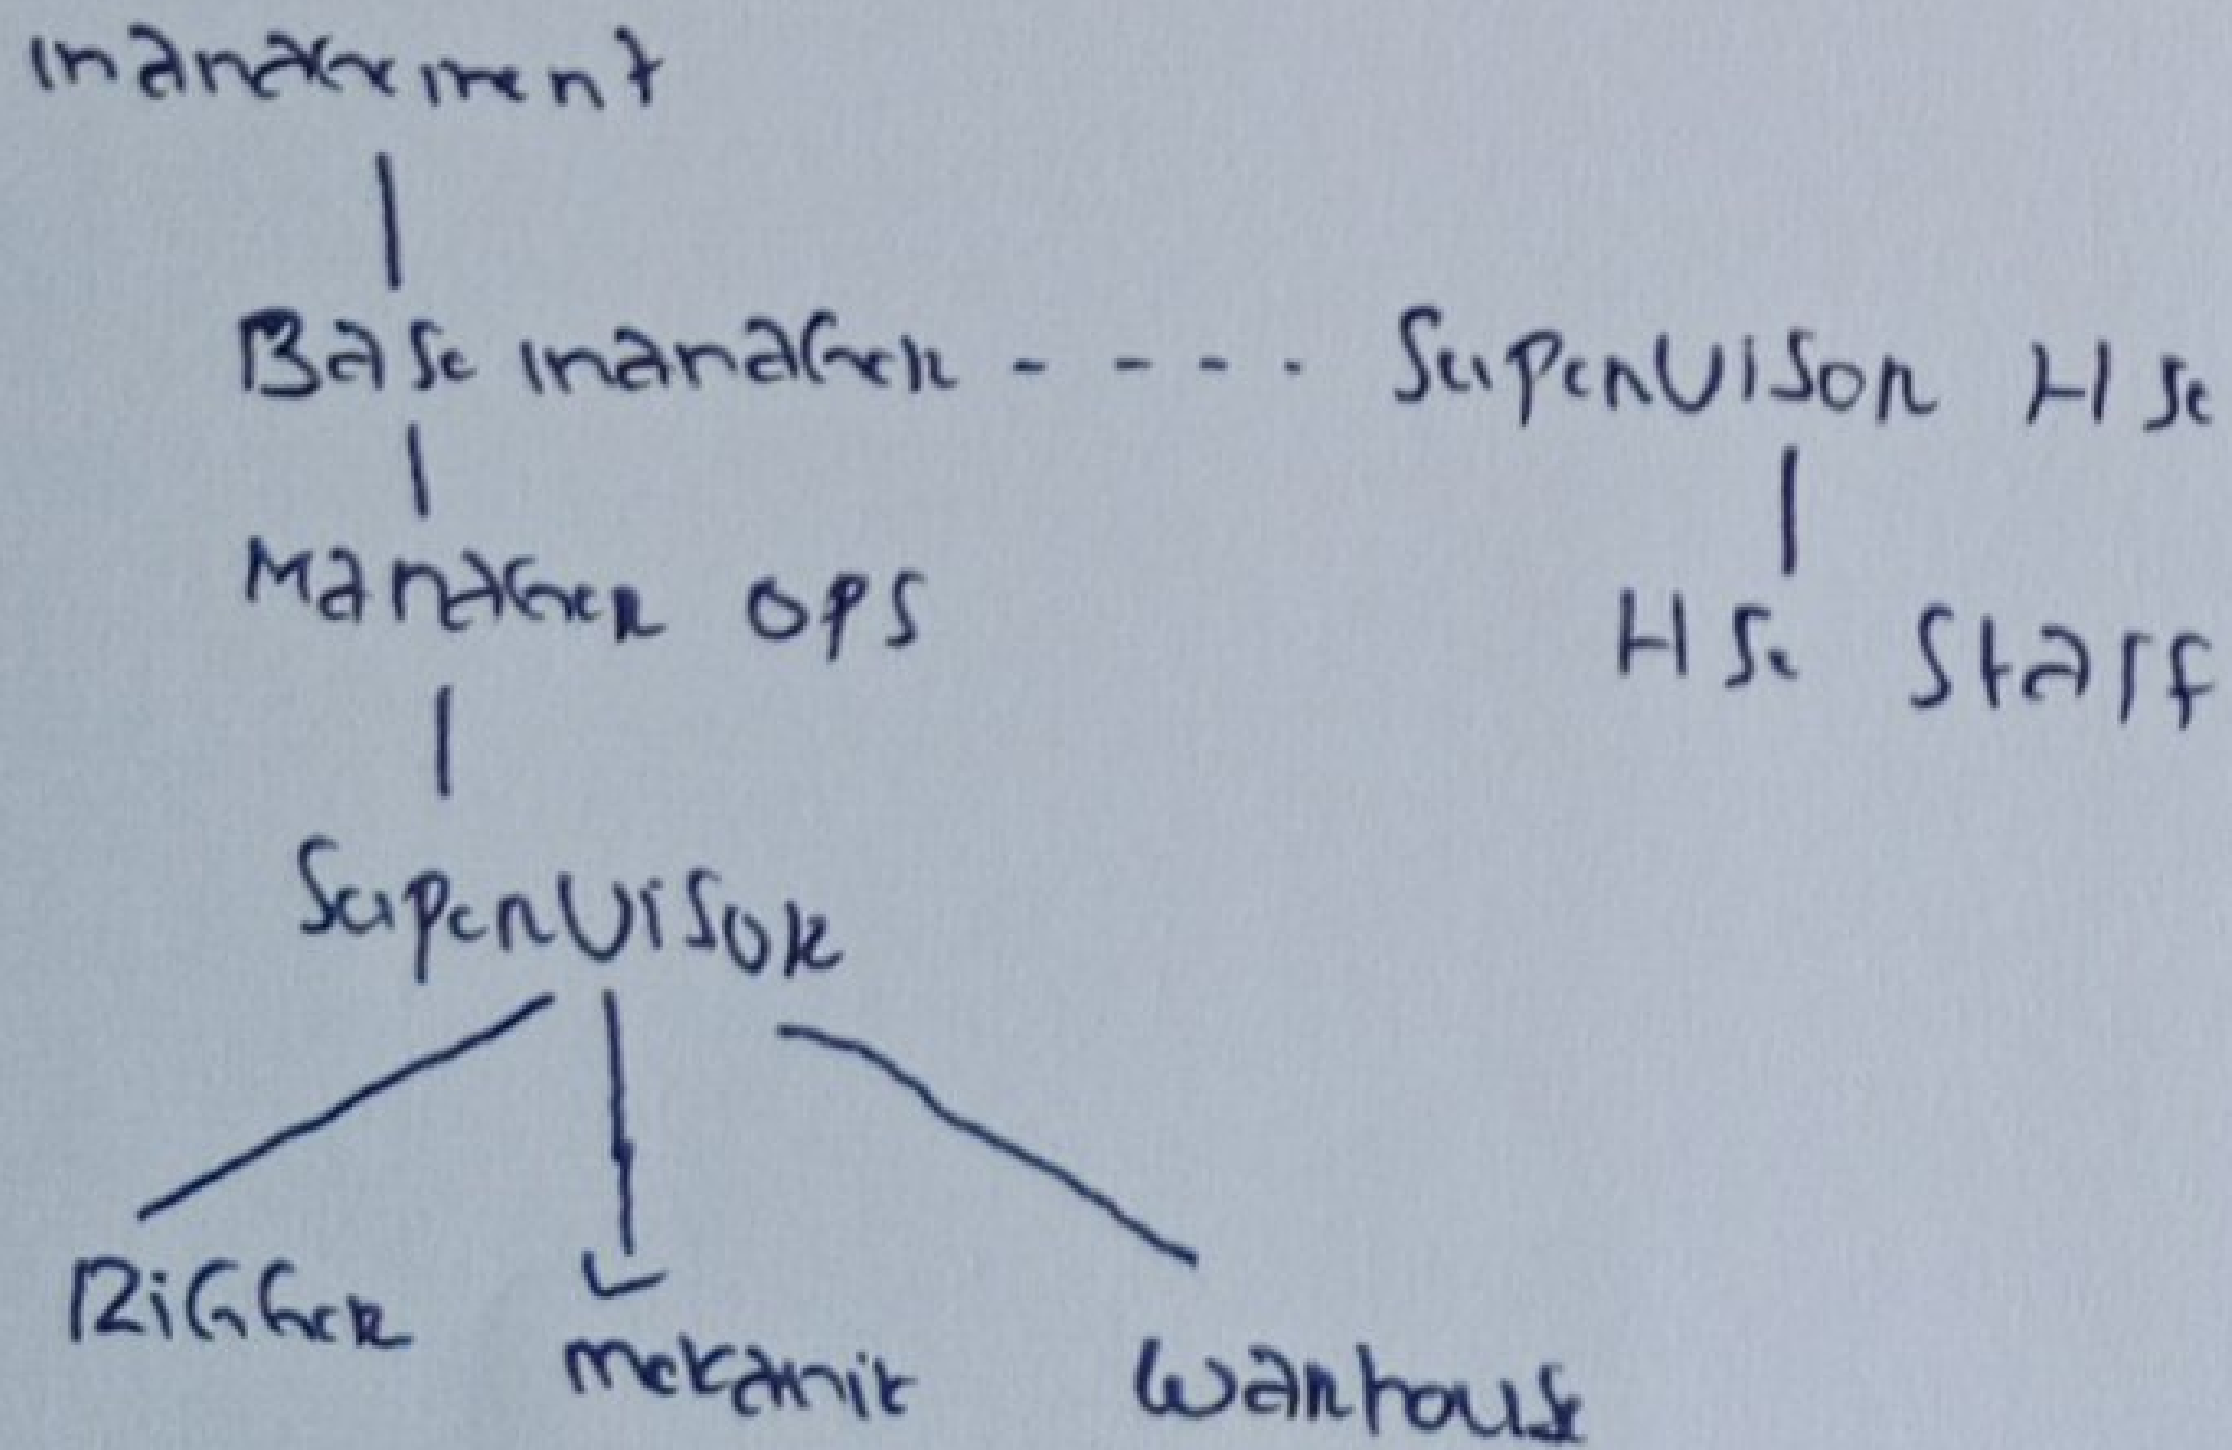 management
Base manager - - - - Supervisor HSE
Manager OPS
HSE Staff
Supervisor
Rigger
mekanik
Warhouse